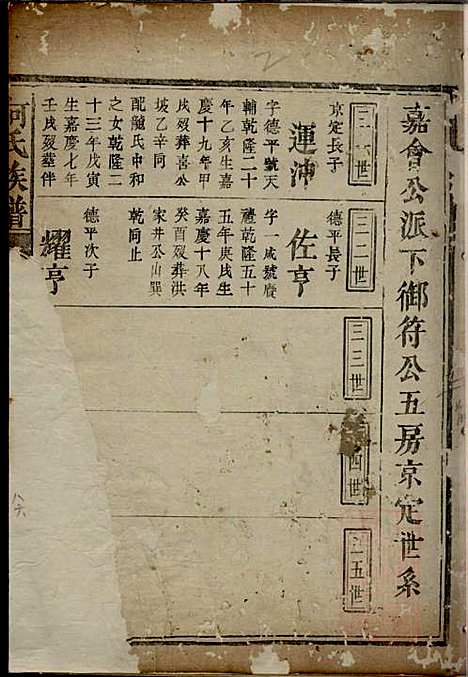 嘉會公派下御符公五房京定世系
三一世
京定長子
運沖
字德平號天
輔乾隆二十
年乙亥生嘉
慶十九年甲
戌歿葬喜公
坡乙辛同
配龍氏申和
之女乾隆二
十三年戊寅
生嘉慶七年
壬戌歿墓伴
三二世
德平長子
佐亨
字一咸號賡
禮乾隆五十
五年庚戌生
嘉慶十八年
癸酉歿葬洪
家井公山巽
乾向止
德平次子
耀亨
三三世
四世
三五世
何氏族譜